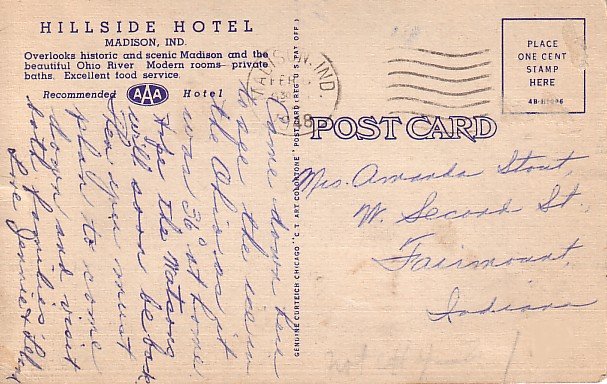 HILLSIDE HOTEL
MADISON, IND.
Overlooks historic and scenic Madison and the
beautiful Ohio River Modern rooms - private
baths. Excellent food service.
Recommended AAA Hotel
Come down here
to see the river
the Ohio as it
was 36° at home
Hope the Watsons
will soon be back
Then you must
plan to come
down and visit
both families
Love Jennie &
GENUINE CURTEICH CHICAGO "C.T. ART COLORTONE" POST CARD (REG. U.S. PAT. OFF.)
MADISON, IND.
FEB
POST CARD
PLACE
ONE CENT
STAMP
HERE
Mrs. Amanda Stout,
W. Second St,
Fairmount,
Indiana
not